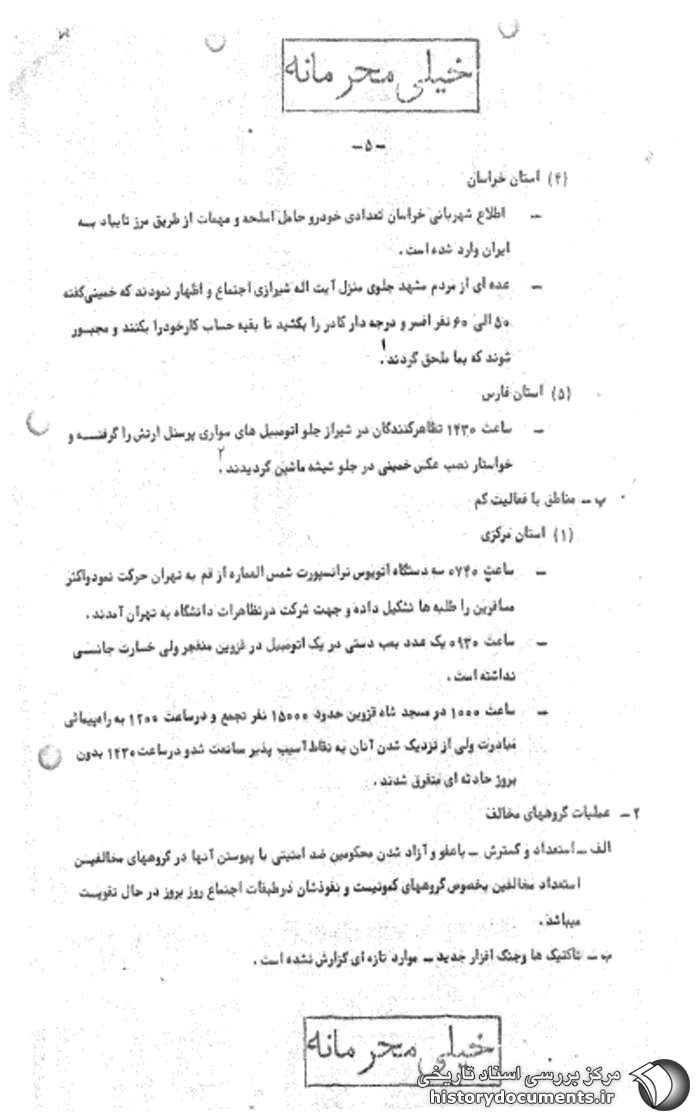 خیلی محرمانه
ـ ۵ ـ
(۴) استان خراسان
ـ اطلاع شهربانی خراسان تعدادی خودرو حامل اسلحه و مهمات از طریق مرز تایباد بسه
ایران وارد شده است .
ـ عده ای از مردم مشهد جلوی منزل آیت اله شیرازی اجتماع و اظهار نمودند که خمینی گفته
۵۰ الی ۶۰ نفر افسر و درجه دار کادر را بکشید تا بقیه حساب کارخودرا بکنند و مجبسور
شوند که بما ملحق گردند .۱
(۵) استان فارس
ـ ساعت ۱۴۳۰ تظاهرکنندگان در شیراز جلو اتومبیل های سواری پرسنل ارتش را گرفتسه و
خواستار نصب عکس خمینی در جلو شیشه ماشین گردیدند .۲
پ ـ مناطق با فعالیت کم
(۱) استان مرکزی
ـ ساعت ۰۷۴۰ سه دستگاه اتوبوس ترانسپورت شمس العماره از قم به تهران حرکت نمودواکثر
مسافرین را طلبه ها تشکیل داده و جهت شرکت درتظاهرات دانشگاه به تهران آمدند .
ـ ساعت ۰۹۳۰ یک عدد بمب دستی در یک اتومبیل در قزوین منفجر ولی خسارت جانسی
نداشته است .
ـ ساعت ۱۰۰۰ در مسجد شاه قزوین حدود ۱۵۰۰۰ نفر تجمع و درساعت ۱۲۰۰ به راهپیمائی
مبادرت ولی از نزدیک شدن آنان به نقاط آسیب پذیر ممانعت شدو درساعت ۱۴۳۰ بدون
بروز حادثه ای متفرق شدند .
۲ ـ عملیات گروههای مخالف
الف ـ استعداد و گسترش ـ باعفو و آزاد شدن محکومین ضد امنیتی با پیوستن آنها در گروههای مخالفیسن
استعداد مخالفین بخصوص گروههای کمونیست و نفوذشان درطبقات اجتماع روز بروز در حال تقویست
میباشد .
ب ـ تاکتیک ها وجنگ افزار جدید ـ موارد تازه ای گزارش نشده است .
خیلی محرمانه
مرکز بررسی اسناد تاریخی
historydocuments.ir